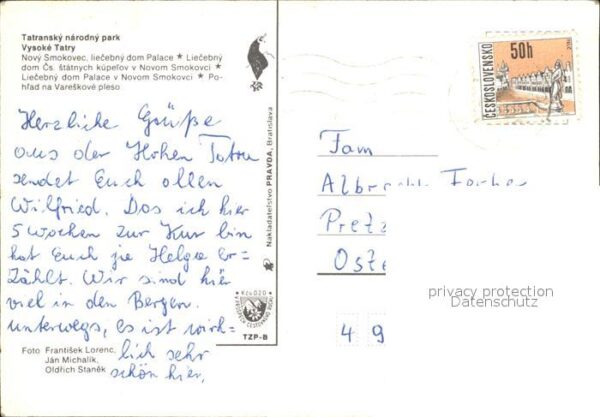 Tatranský národný park
Vysoké Tatry
Nový Smokovec, liečebný dom Palace ★ Liečebný
dom Čs. štátnych kúpeľov v Novom Smokovci ★
Liečebný dom Palace v Novom Smokovci ★ Po-
hľad na Vareškové pleso
Herzliche Grüße
aus der Hohen Tatra
sendet Euch allen
Wilfried. Das ich hier
5 Wochen zur Kur bin
hat Euch ja Helga er=
zählt. Wir sind hier
viel in den Bergen
unterwegs, es ist wirk=
lich sehr
schön hier.
Foto František Lorenc,
Ján Michalík,
Oldřich Staněk
Nakladateľstvo PRAVDA, Bratislava
TZP-B
ČESKOSLOVENSKO
50h
Fam
Albrecht
Pretz
Oste
4 9
privacy protection
Datenschutz